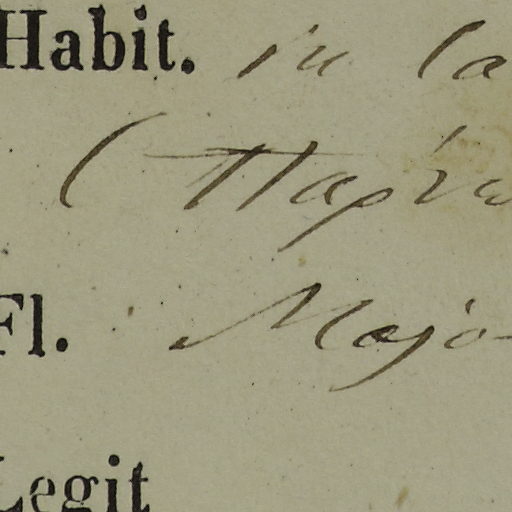 Habit. in la
Fl. Majo
Legit